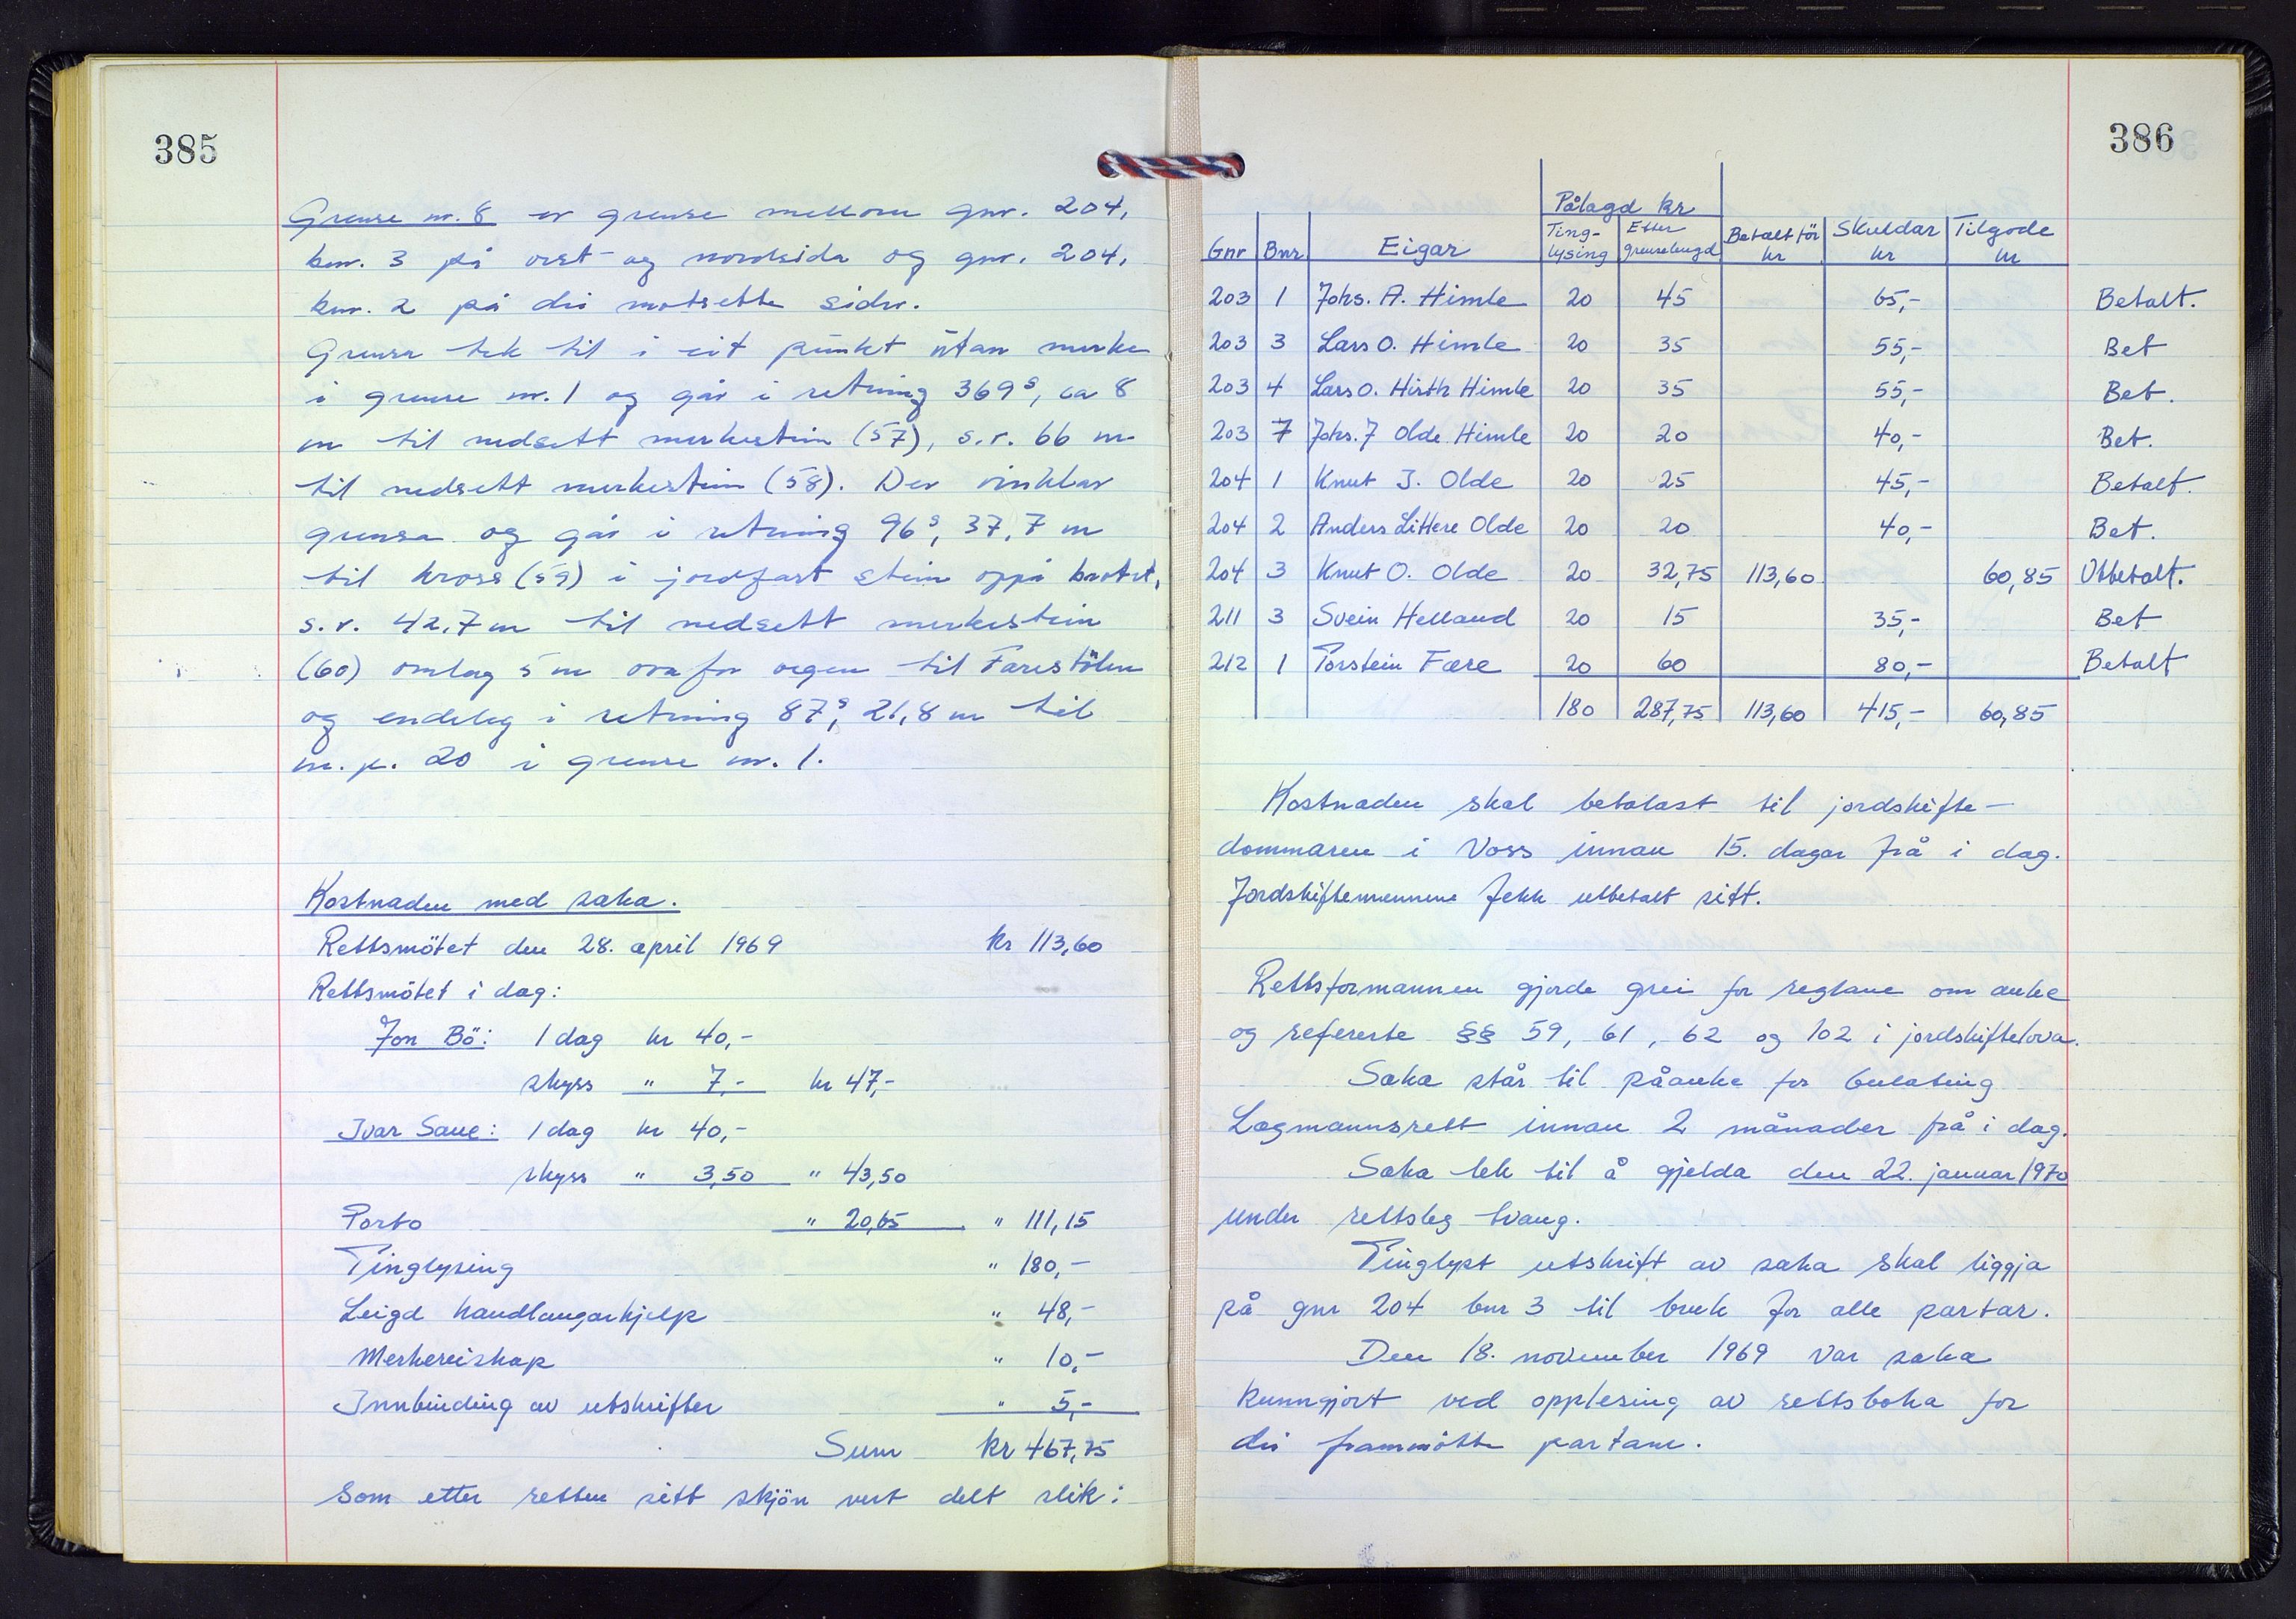 385
Grense nr. 8 er grense mellom gnr. 204,
bnr. 3 på vest- og nordsida og gnr. 204,
bnr. 2 på dei motsette sider.
Grensa tek til i eit punkt utan merke
i grense nr. 1 og går i retning 369ᵍ, ca 8
m til nedsett merkestein (57), s.r. 66 m
til nedsett merkestein (58). Der vinklar
grensa og går i retning 96ᵍ, 37,7 m
til kross (59) i jordfast stein oppå brotet,
s.r. 42,7 m til nedsett merkestein
(60) omlag 5 m ovafor vegen til Farestölen
og endeleg i retning 87ᵍ, 21,8 m til
m.p. 20 i grense nr. 1.
Kostnaden med saka.
Rettsmötet den 28. april 1969 kr 113,60
Rettsmötet i dag:
Jon Bö: 1 dag kr 40,-
skyss " 7,- kr 47,-
Ivar Saue: 1 dag kr 40,-
skyss " 3,50 " 43,50
Porto " 20,65 " 111,15
Tinglysing " 180,-
Leigd handlangarhjelp " 48,-
Merkereiskap " 10,-
Innbinding av utskrifter " 5,-
Sum kr 467,75
som etter retten sitt skjön vert delt slik:
386
Pålagd kr
Gnr Bnr Eigar Ting-lysing Etter grenselengd Betalt för kr Skuldar kr Tilgode kr
203 1 Johs. A. Himle 20 45 65,- Betalt.
203 3 Lars O. Himle 20 35 55,- Bet
203 4 Lars O. Hirth Himle 20 35 55,- Bet.
203 7 Johs. J Olde Himle 20 20 40,- Bet.
204 1 Knut I. Olde 20 25 45,- Betalt.
204 2 Anders Littere Olde 20 20 40,- Bet.
204 3 Knut O. Olde 20 32,75 113,60 60,85 Utbetalt.
211 3 Svein Helland 20 15 35,- Bet
212 1 Torstein Fære 20 60 80,- Betalt
180 287,75 113,60 415,- 60,85
Kostnaden skal betalast til jordskifte-
dommaren i Voss innan 15. dagar frå i dag.
Jordskiftemennene fekk utbetalt sitt.
Rettsformannen gjorde grei for reglane om anke
og refererte §§ 59, 61, 62 og 102 i jordskiftelova.
Saka står til påanke for Gulating
Lagmannsrett innan 2 månader frå i dag.
Saka tek til å gjelda den 22. januar 1970
under rettsleg tvang.
Tinglyst utskrift av saka skal liggja
på gnr 204 bnr 3 til bruk for alle partar.
Den 18. november 1969 var saka
kunngjort ved opplesing av rettsboka for
dei frammötte partane.